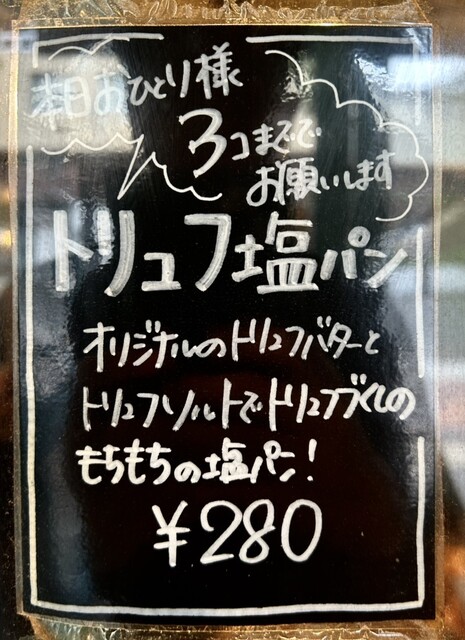 本日おひとり様
3コまでで
お願いします
トリュフ塩パン
オリジナルのトリュフバターと
トリュフソルトでトリュフづくしの
もちもちの塩パン!
¥280